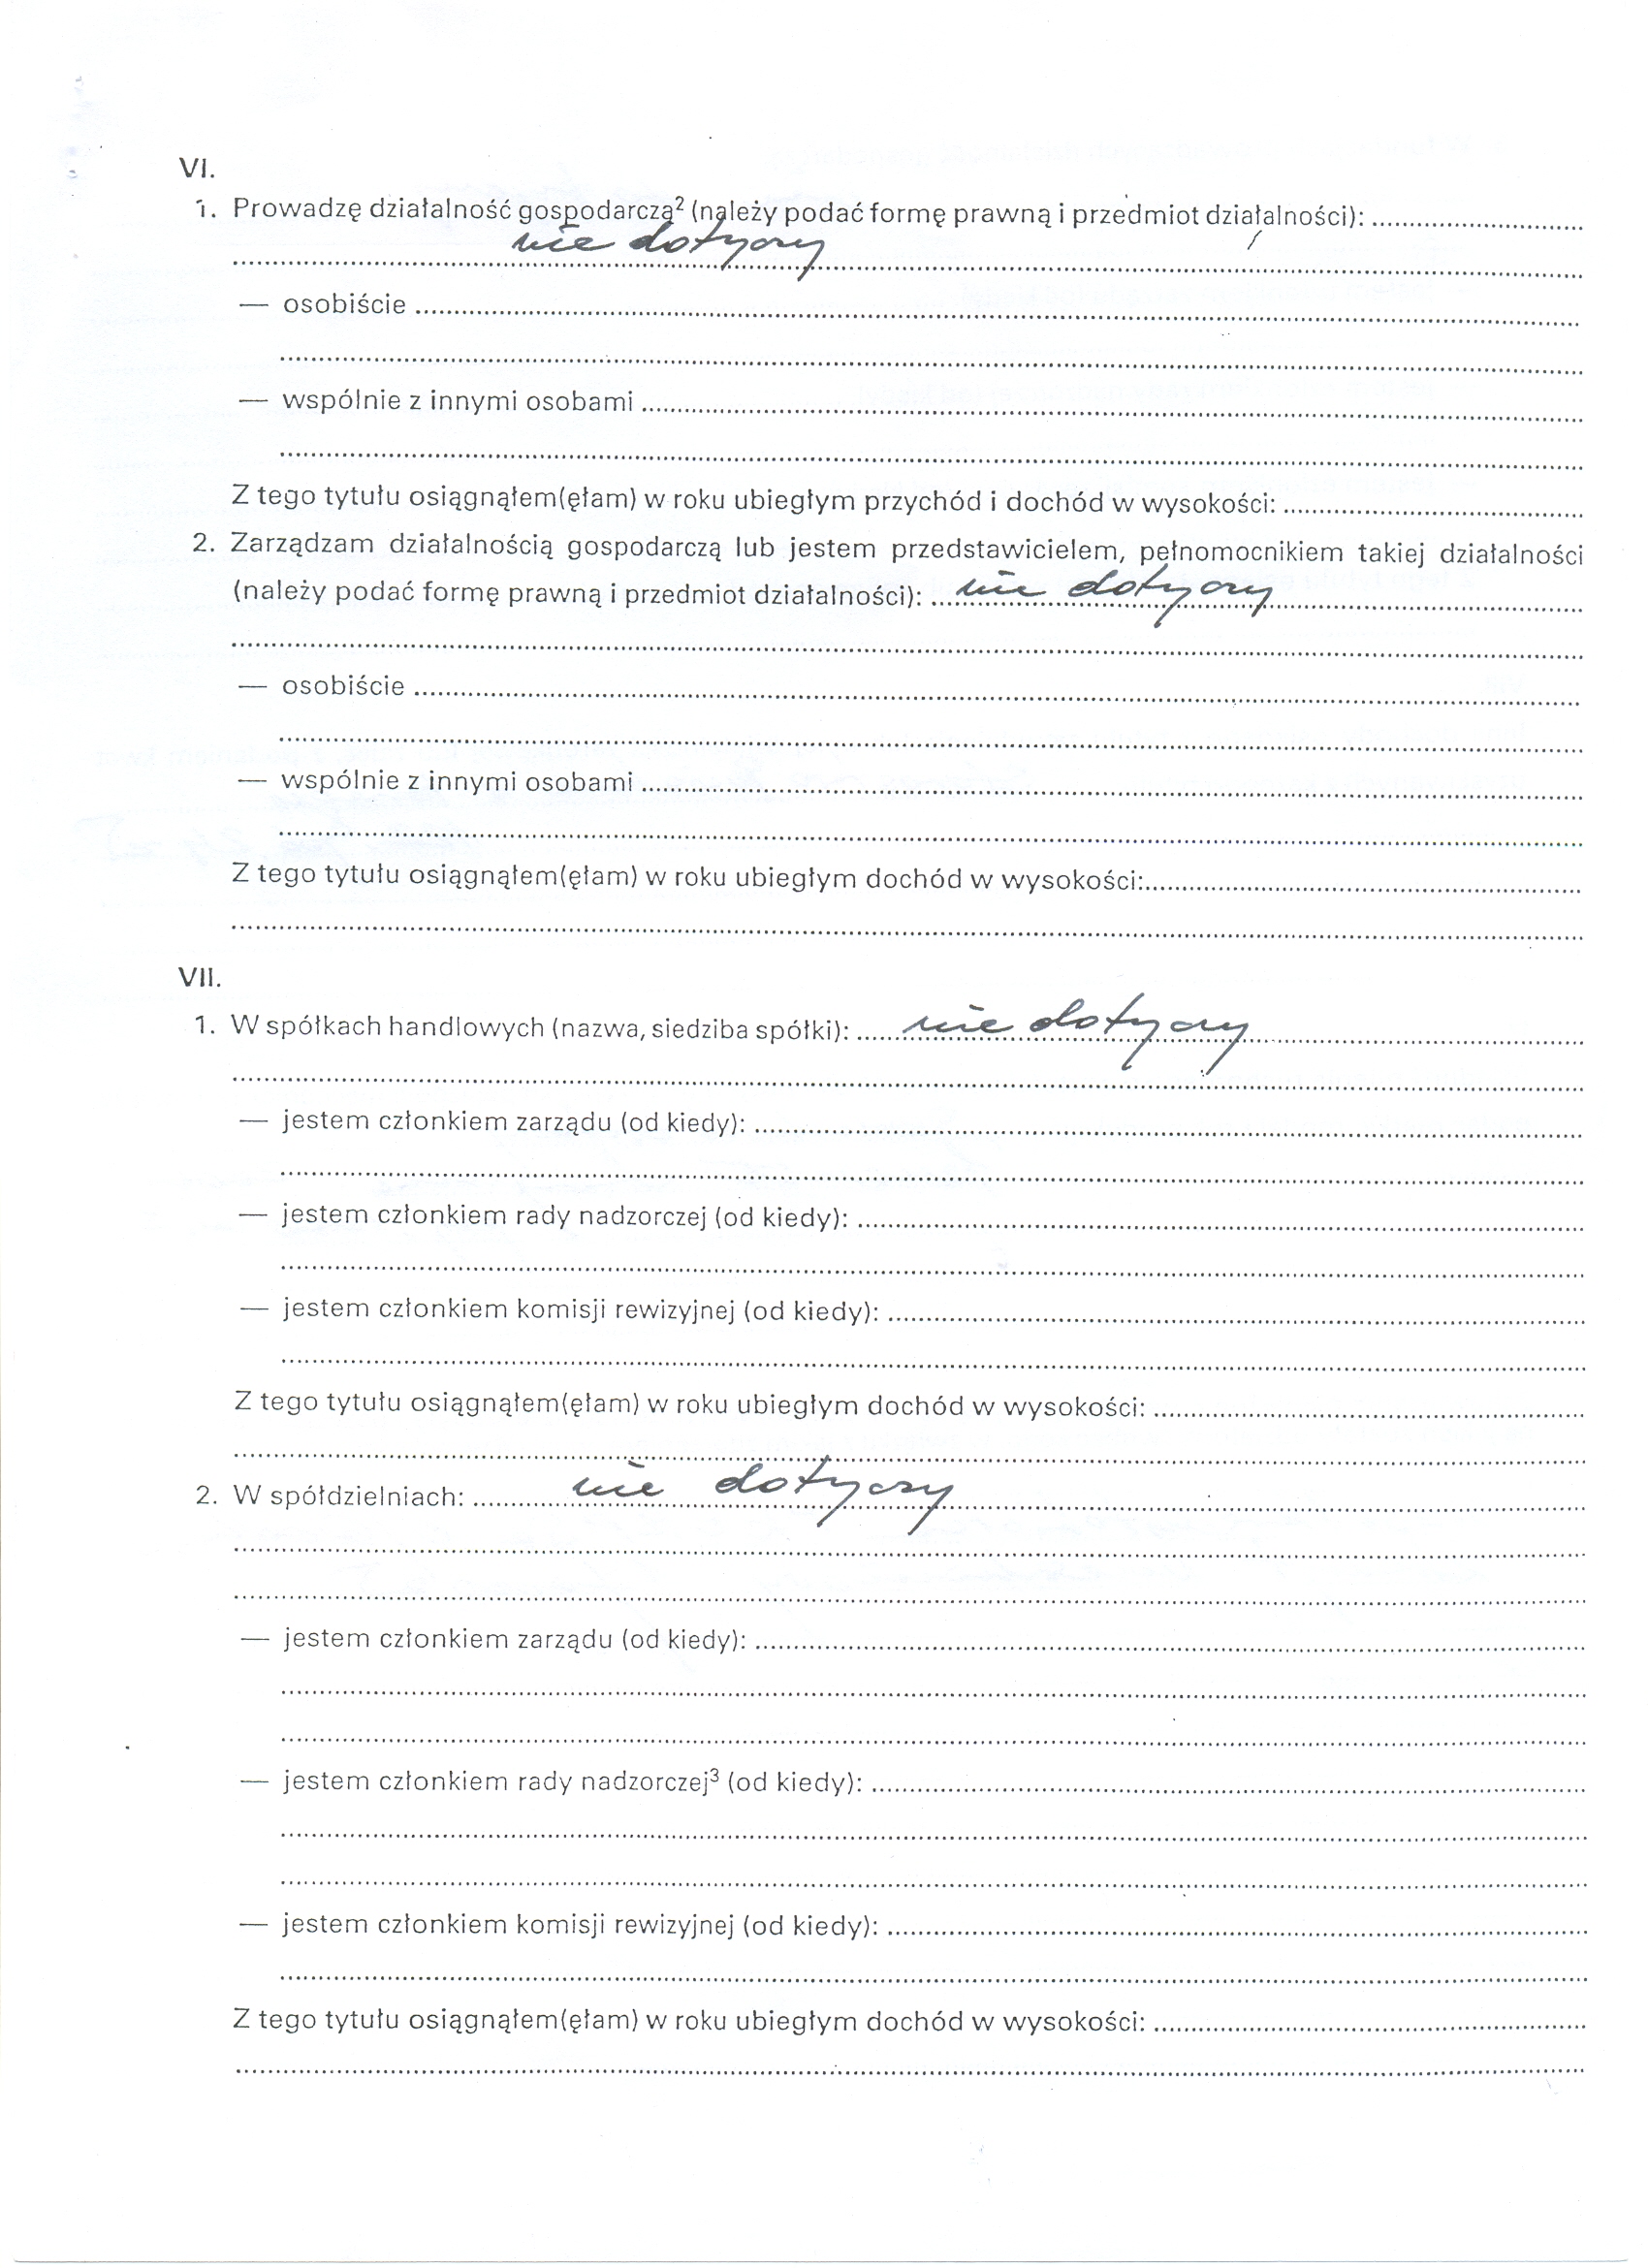 VI.
1. Prowadzę działalność gospodarczą² (należy podać formę prawną i przedmiot działalności): ..........
nie dotyczy
— osobiście ..........
— wspólnie z innymi osobami ..........
Z tego tytułu osiągnąłem(ęłam) w roku ubiegłym przychód i dochód w wysokości: ..........
2. Zarządzam działalnością gospodarczą lub jestem przedstawicielem, pełnomocnikiem takiej działalności
(należy podać formę prawną i przedmiot działalności): .. nie dotyczy ..........
— osobiście ..........
— wspólnie z innymi osobami ..........
Z tego tytułu osiągnąłem(ęłam) w roku ubiegłym dochód w wysokości: ..........
VII.
1. W spółkach handlowych (nazwa, siedziba spółki): ..... nie dotyczy ..........
— jestem członkiem zarządu (od kiedy): ..........
— jestem członkiem rady nadzorczej (od kiedy): ..........
— jestem członkiem komisji rewizyjnej (od kiedy): ..........
Z tego tytułu osiągnąłem(ęłam) w roku ubiegłym dochód w wysokości: ..........
2. W spółdzielniach: .......... nie dotyczy ..........
— jestem członkiem zarządu (od kiedy): ..........
— jestem członkiem rady nadzorczej³ (od kiedy): ..........
— jestem członkiem komisji rewizyjnej (od kiedy): ..........
Z tego tytułu osiągnąłem(ęłam) w roku ubiegłym dochód w wysokości: ..........